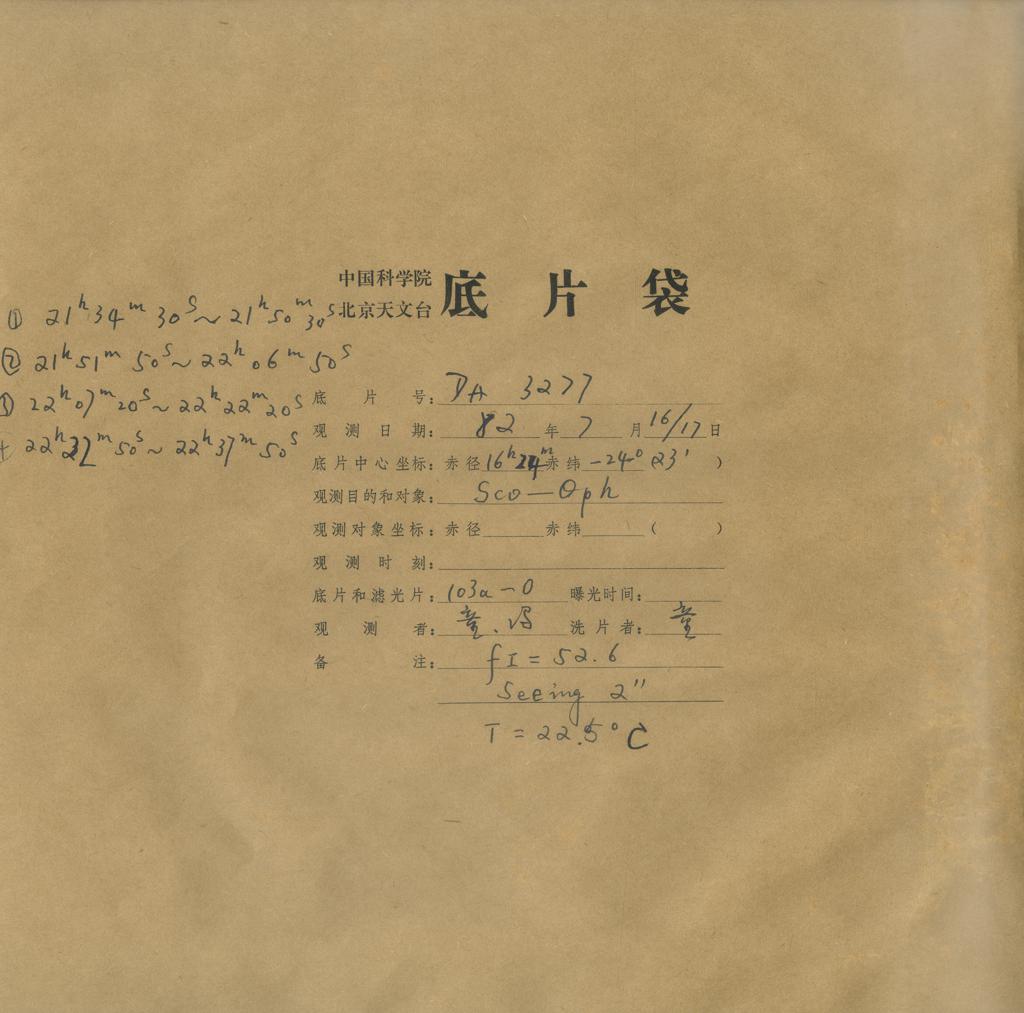 中国科学院
北京天文台
底片袋
① 21h 34m 30s ~ 21h 50m 30s
② 21h 51m 50s ~ 22h 06m 50s
22h 07m 20s ~ 22h 22m 20s
22h 22m 50s ~ 22h 37m 50s
底片号: DA 3277
观测日期: 82 年 7 月 16/17 日
底片中心坐标: 赤径 16h 24m 赤纬 -24° 23′ )
观测目的和对象: Sco—Oph
观测对象坐标: 赤径 赤纬 ( )
观测时刻:
底片和滤光片: 103a-O 曝光时间:
观测者: 童、冯 洗片者: 童
备注: fI = 52.6
Seeing 2″
T = 22.5°C